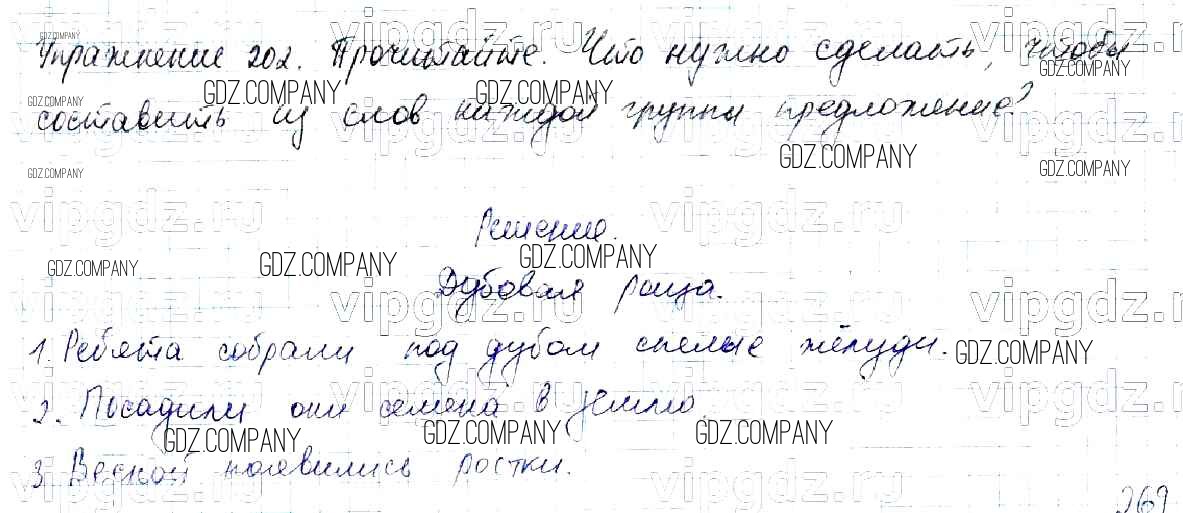 Упражнение 202. Прочитайте. Что нужно сделать, чтобы
составить из слов каждой группы предложение?
Решение.
Дубовая роща.
1. Ребята собрали под дубом спелые жёлуди.
2. Посадили они семена в землю.
3. Весной появились ростки.
269
vipgdz.ru
GDZ.COMPANY